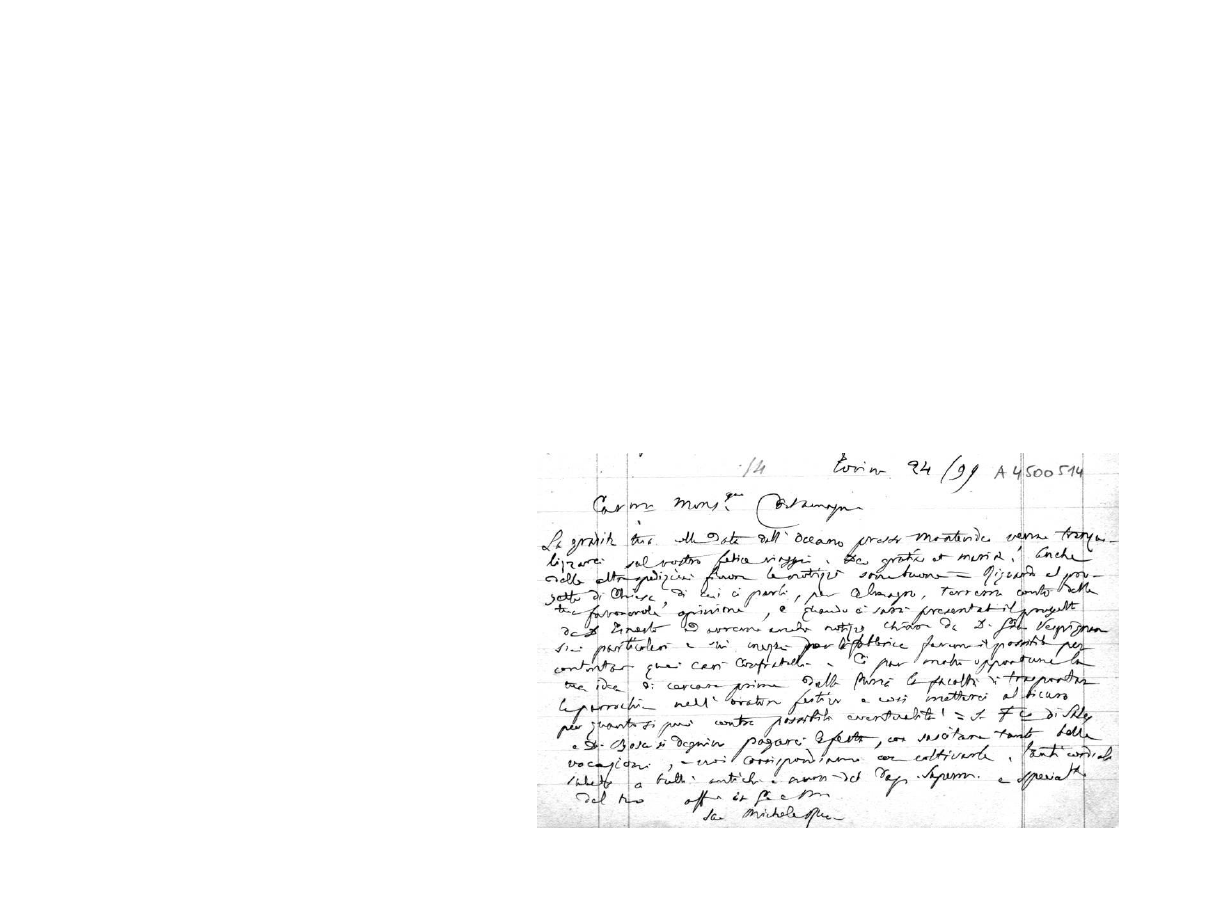 ·/4 Torino 24 /99 A 4500514
Car.mo Mons.r Costamagna
La gradita tua colla data dall' Oceano presso Montevideo venne tranqui-
lizzarci sul vostro felice viaggio. Deo gratias et Mariae! Anche
delle altre spedizioni finora le notizie sono buone = Riguardo al pro-
getto di Chiesa, di cui ci parli, per Almagro, terremo conto della
tua favorevole opinione, e quando ci sarà presentato il progetto
da D. Ernesto ed avremo anche notizie chiare da D. Vespignani
sui particolari e sui mezzi per la fabbrica faremo il possibile per
contentar quei cari Confratelli. Ci par molto opportuna la
tua idea di cercare prima dalla Curia la facoltà di trasportar
la parrochia nell' oratorio festivo e così metterci al sicuro
per quanto si può contro possibili eventualità! = S. F.co di Sales
e D. Bosco si degnino pagarci la festa, con suscitare tante belle
vocazioni, e noi corrispondiamo con coltivarle. Tanti cordiali
saluti a tutti antichi e nuovi del Cap. Superiore e specialmente
dal tuo aff.mo in G. e M.
Sac. Michele Rua